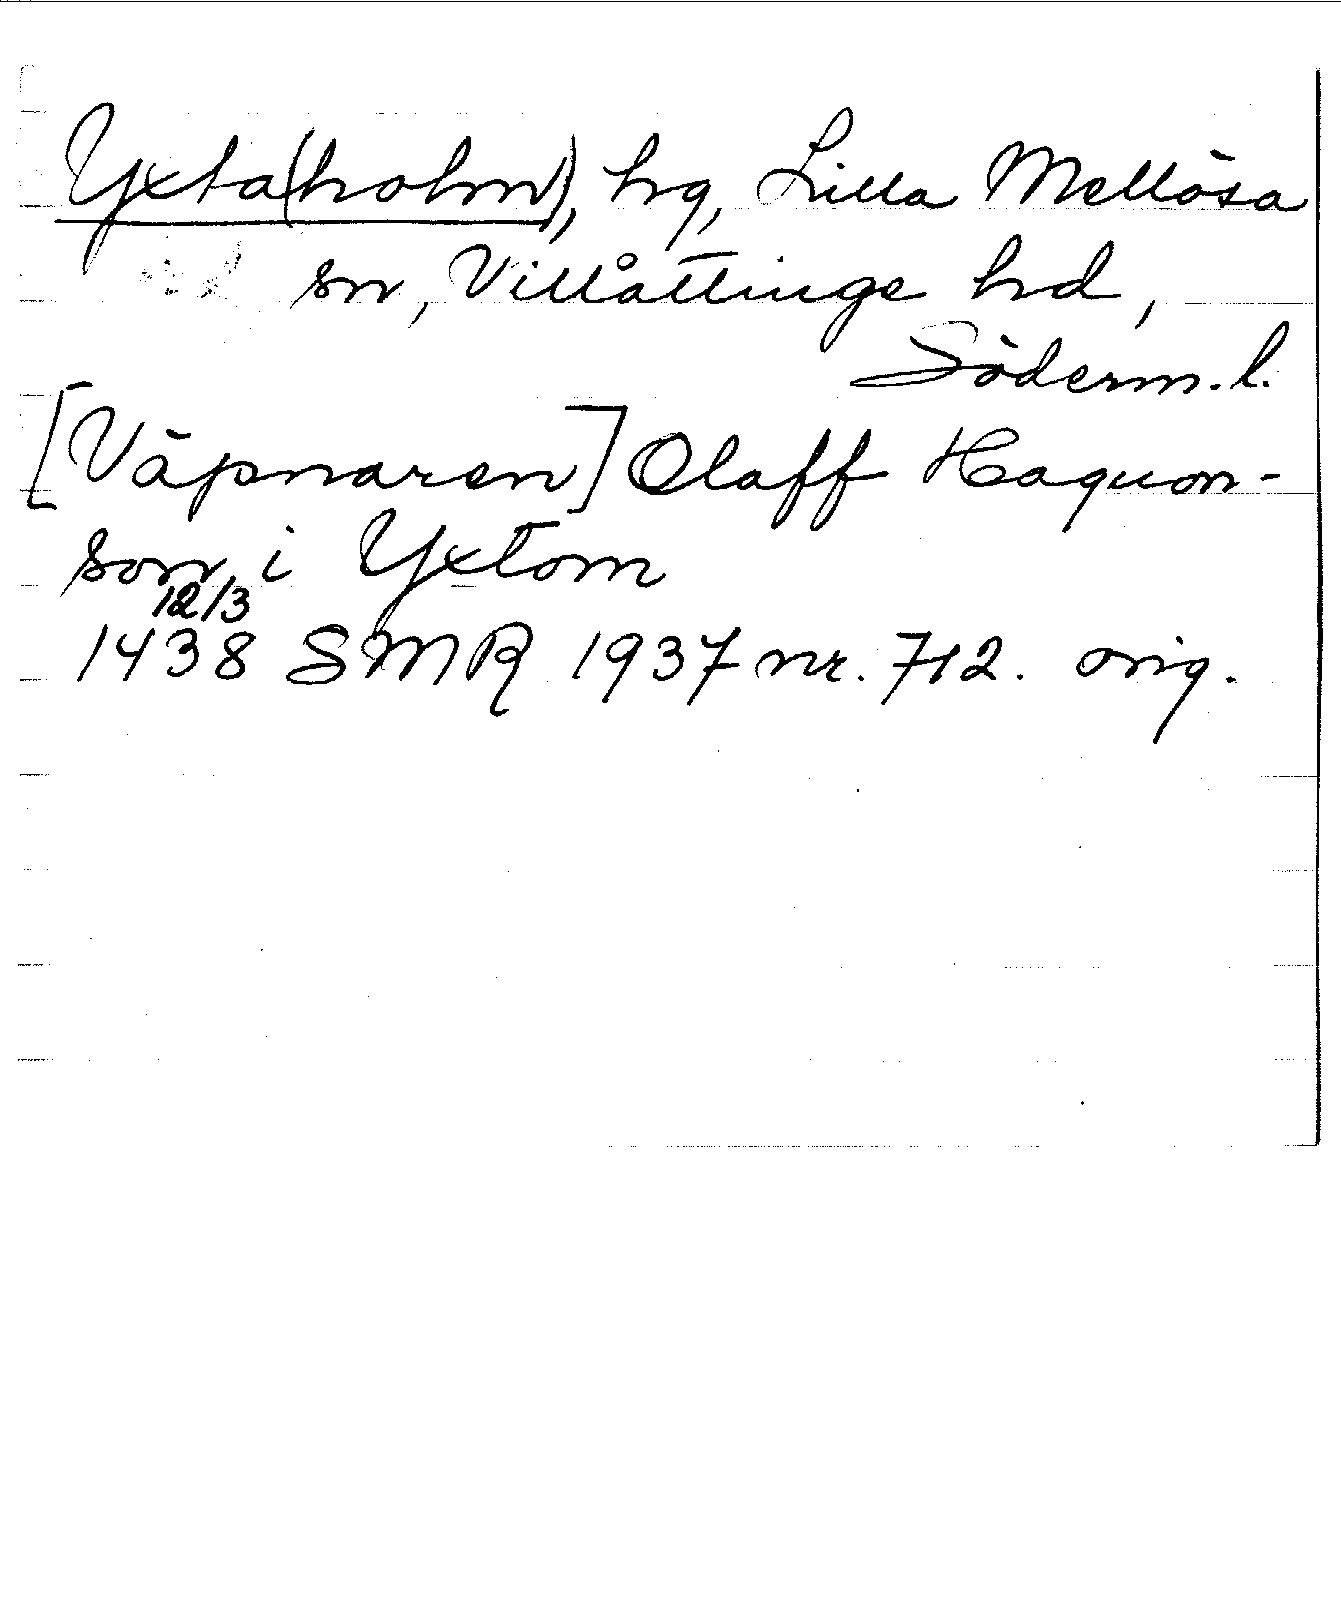 Yxta(holm), hg, Lilla Mellösa
sn, Villåttinge hd,
Söderm. l.
[Väpnaren] Olaff Haquon-
son, i Yxtom
12/3
1438 SMR 1937 nr. 712. orig.